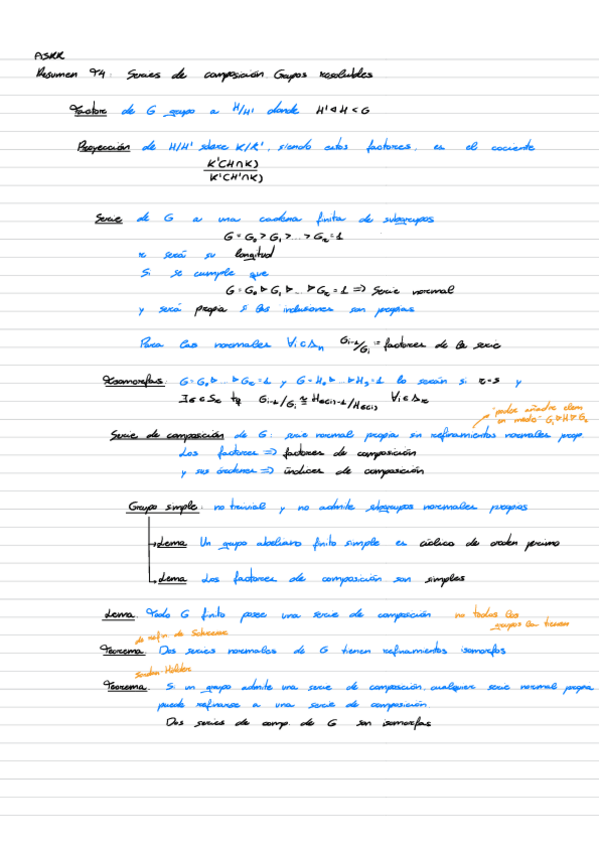 ASKK
Resumen T4: Series de composición. Grupos resolubles
Factor de G grupo a H/H' donde H' ◁ H < G
Proyección de H/H' sobre K/K', siendo estos factores, es el cociente
K'(H∩K)
K'(H'∩K)
Serie de G a una cadena finita de subgrupos
G = G₀ > G₁ > ... > Gᵣ = 1
r será su longitud
Si se cumple que
G = G₀ ▷ G₁ ▷ ... ▷ Gᵣ = 1 => Serie normal
y será propia si las inclusiones son propias
Para las normales ∀i∈Δₙ Gᵢ₋₁/Gᵢ = factores de la serie
Isomorfas: G = G₀ ▷ ... ▷ Gᵣ = 1 y G = H₀ ▷ ... ▷ Hₛ = 1 lo serán si r = s y
∃σ∈Sᵣ tq Gᵢ₋₁/Gᵢ ≅ H_σ(i)-1/H_σ(i) ∀i∈Δᵣ
podes añadir elem
en medio Gᵢ ▷ H ▷ G₂
Serie de composición de G: serie normal propia sin refinamientos normales prop.
Los factores => factores de composición
y sus órdenes => índices de composición
Grupo simple: no trivial y no admite subgrupos normales propios
Lema Un grupo abeliano finito simple es cíclico de orden primo
Lema Los factores de composición son simples
Lema. Todo G finito posee una serie de composición no todos los
grupos la tienen
de refin. de Schreier
Teorema. Dos series normales de G tienen refinamientos isomorfos
Jordan-Hölder
Teorema. Si un grupo admite una serie de composición, cualquier serie normal propia
puede refinarse a una serie de composición.
Dos series de comp. de G son isomorfas